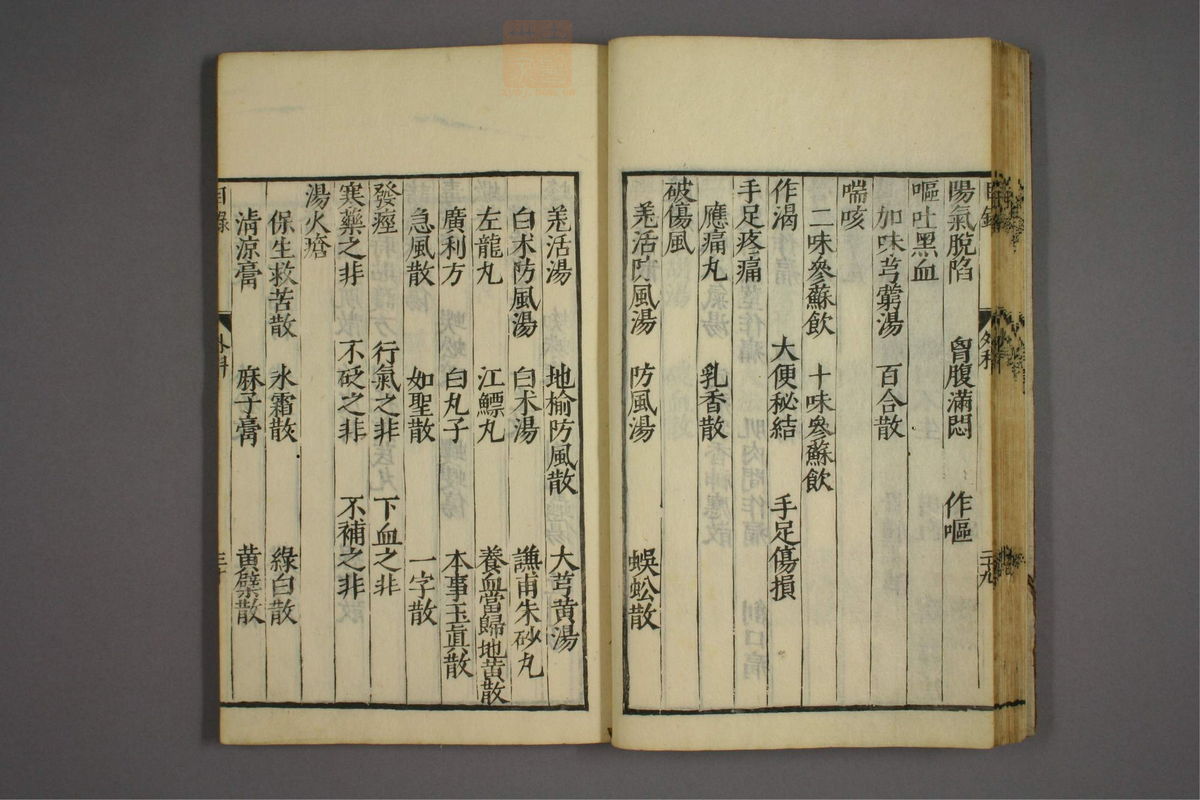 目錄 外科 二十九
陽氣脫陷 胷腹滿悶 作嘔
嘔吐黑血
加味芎藭湯 百合散
喘咳
二味參蘇飲 十味參蘇飲
作渴 大便秘結 手足傷損
手足疼痛
應痛丸 乳香散
破傷風
羌活防風湯 防風湯 蜈蚣散
羌活湯 地榆防風散 大芎黃湯
白朮防風湯 白朮湯 譙甫朱砂丸
左龍丸 江鰾丸 養血當歸地黃散
廣利方 白丸子 本事玉眞散
急風散 如聖散 一字散
發痙 行氣之非 下血之非
寒藥之非 不砭之非 不補之非
湯火瘡
保生救苦散 氷霜散 綠白散
清涼膏 麻子膏 黃蘗散
目錄 外科 三十